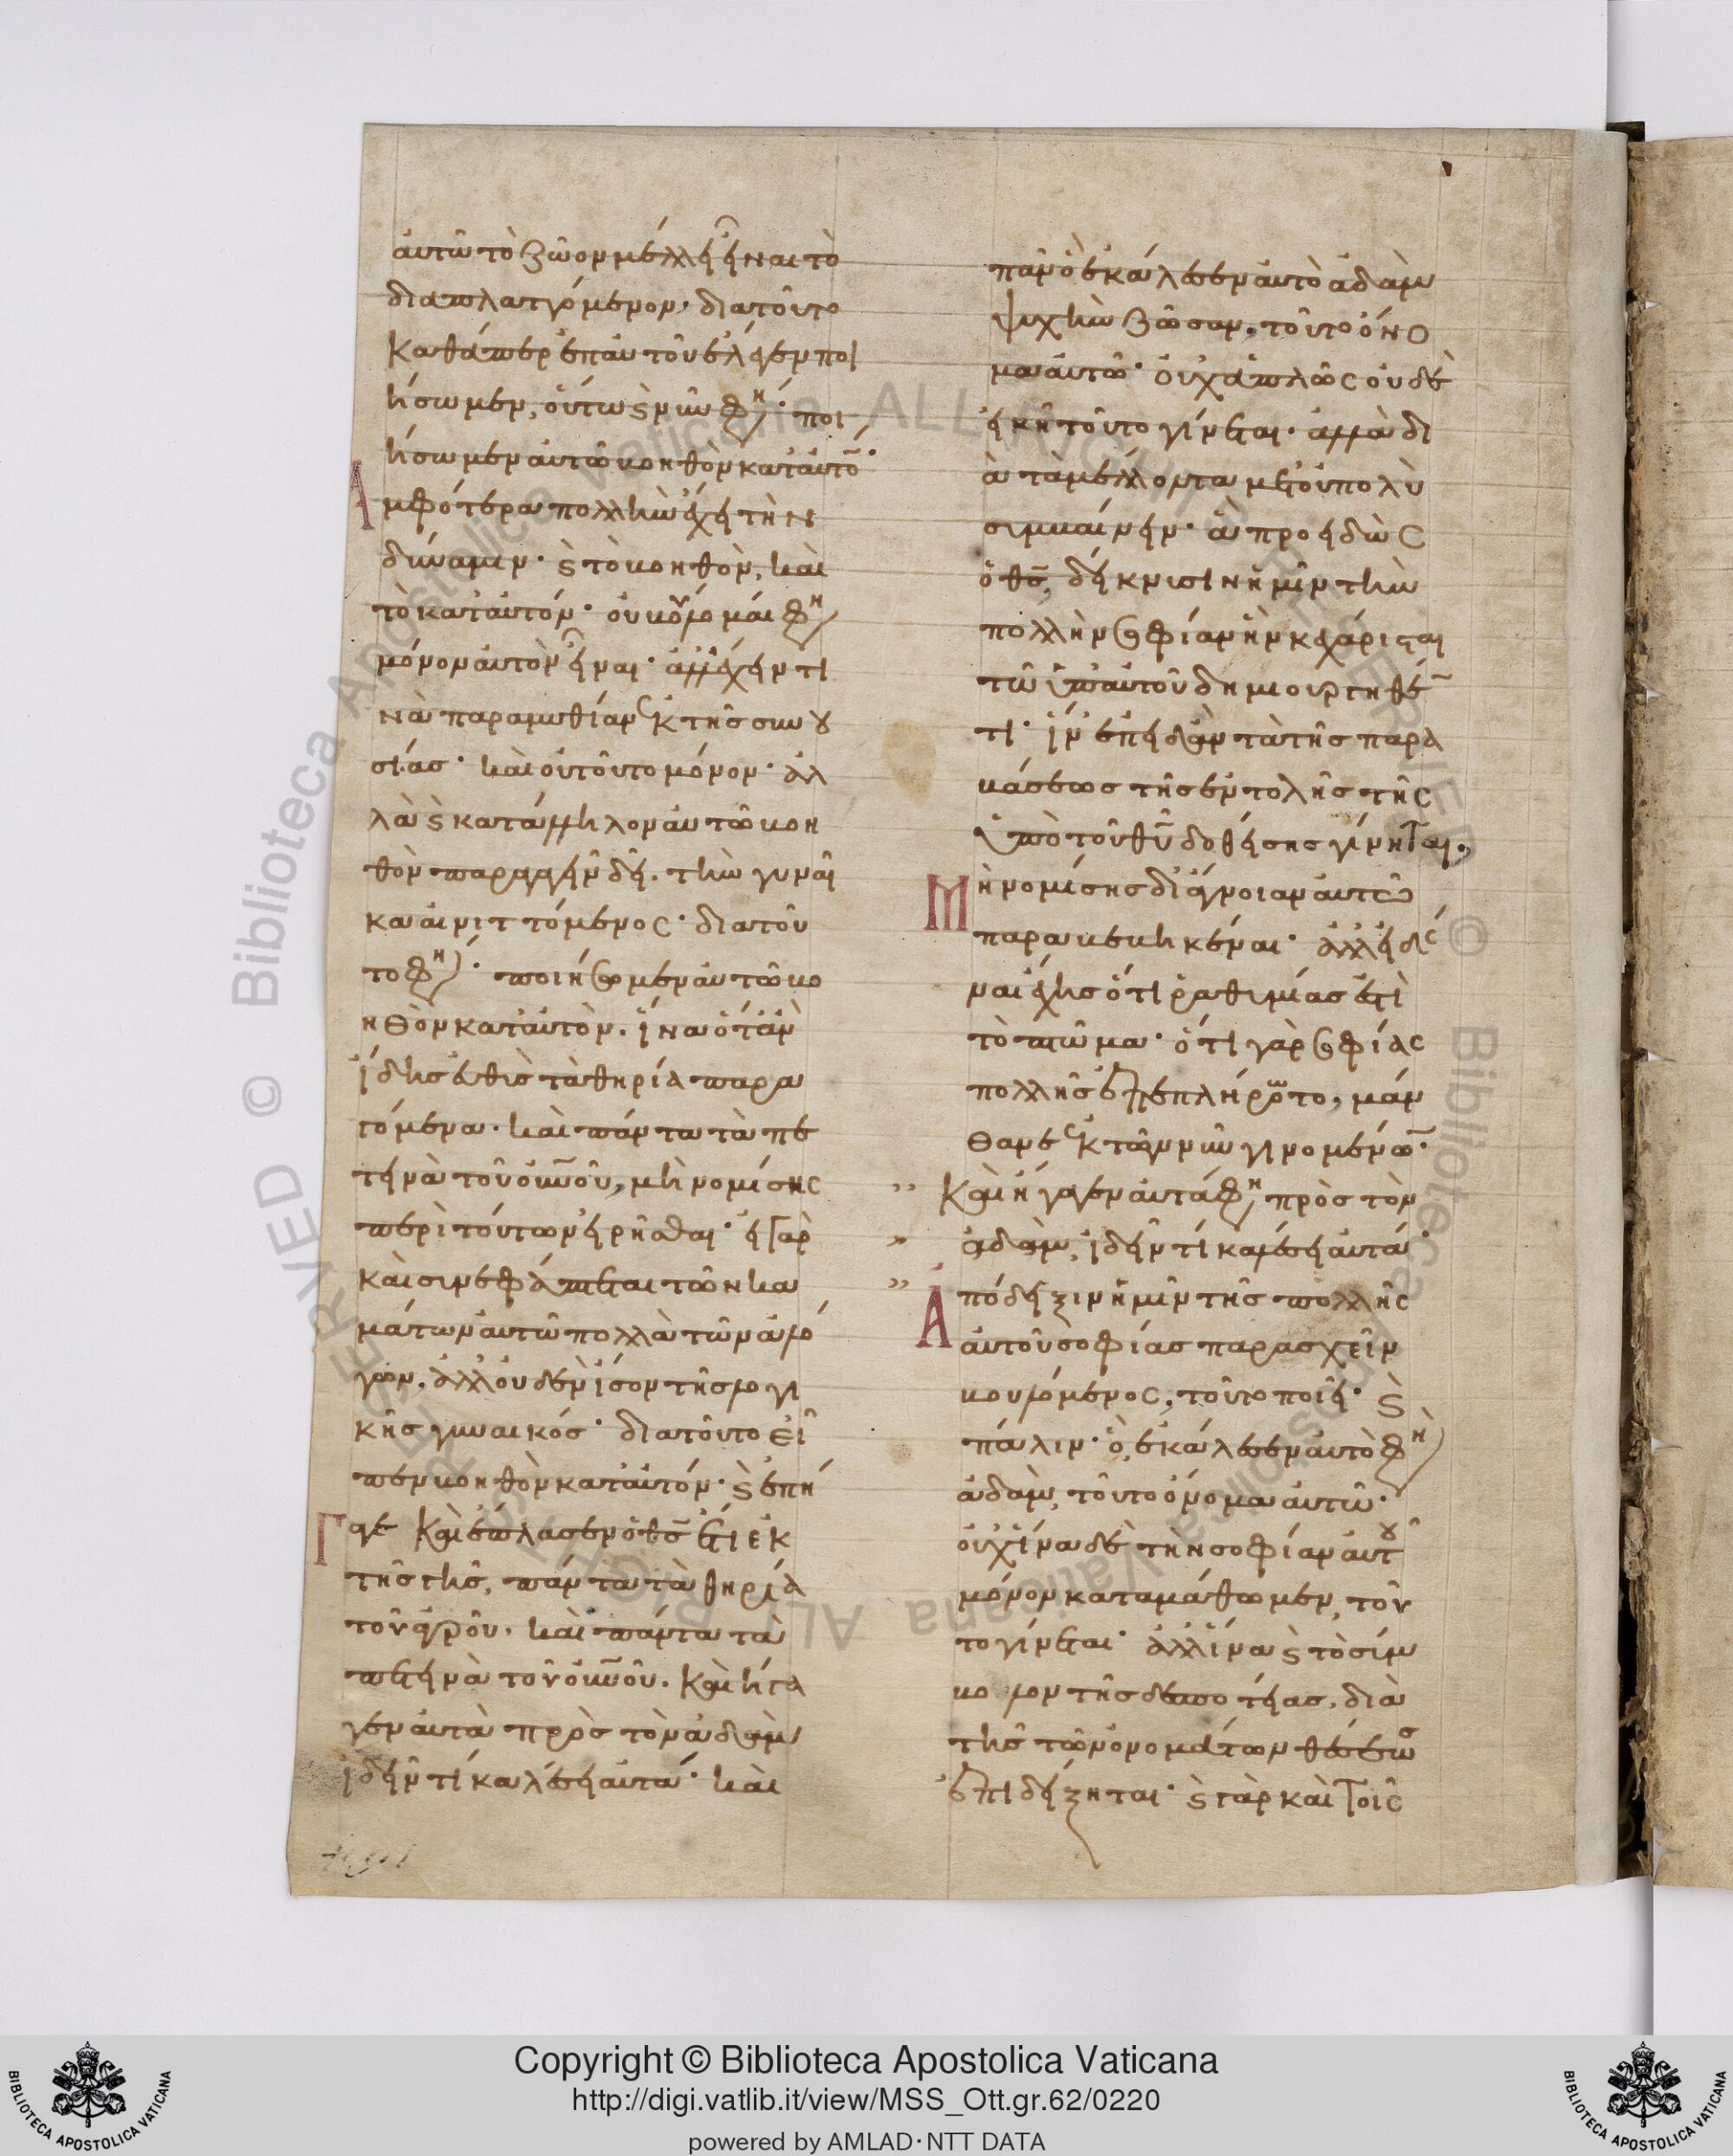 ἀυτῶ τὸ ζῶον μέλλει εἶναι τὸ
διαπλαττόμενον· διατοῦτο
καθάπερ ἐπ αυτοῦ ἔλεγεν ποι
ήσωμεν, ὁύτως νῦν φη· ποι
ήσωμεν ἀυτῶ βοηθὸν κατ ἀυτό·
Ἀμφότερα πολλὴν ἔχει τὴν
δύναμιν· καὶ τὸ βοηθὸν, καὶ
τὸ κατ ἀυτόν· ου βούλομαι φη
μόνον ἀυτὸν εἶναι· ἀλλ ἔχειν τι
νὰ παραμυθίαν ἐκ τῆς συνου
σίας· καὶ ου τοῦτο μόνον· ἀλ
λὰ καὶ κατάλληλον ἀυτῶ βοη
θὸν παραγαγεῖν δεῖ. τὴν γυναῖ
κα ἀινιττόμενος· διατοῦ
το φη· ποιήσωμεν ἀυτῶ βο
ηθὸν κατ ἀυτὸν. ἵνα ὅταν
ἴδης ἐυθὺς τὰ θηρία παρα
γόμενα· καὶ πάντα τὰ πε
τεινὰ τοῦ ουνοῦ, μὴ νομίσης
περὶ τούτων εἰρῆσθαι· ει γὰρ
καὶ συνεφάπτεται τῶν κα
μάτων ἀυτῶ πολλὰ τῶν ἀλό
γων. ἀλλ ουδὲν ἴσον τῆς λογι
κῆς γυναικός· διατοῦτο εἰ
πεν βοηθὸν κατ ἀυτόν· καὶ ἐπή
γαγε Καὶ ἔπλασεν ὁ θς ἔτι ἐκ
τῆς γῆς, πάντα τὰ θηρία
τοῦ ἀγροῦ. καὶ πάντα τὰ
πετεινὰ τοῦ ουνοῦ. Καὶ ήγα
γεν ἀυτὰ πρὸς τὸν ἀδὰμ
ἰδεῖν τί καλέσει ἀυτά· καὶ
πᾶν ὃ ἐκάλεσεν ἀυτὸ ἀδὰμ
ψυχὴν ζῶσαν, τοῦτο όνο
μα ἀυτῶ· ὀυχ απλῶς ὀυδὲ
εἰκῆ τοῦτο γίνεται· ἀλλὰ δι
ὰ τὰ μέλλοντα μετ ὀυπολὺ
συμβαίνειν· ἃ προειδὼς
ὁ θς, δείκνυσιν ἡμῖν τὴν
πολλὴν σοφίαν ἣν κεχάρισται
τῶ ὑπ αυτοῦ δημιουργηθέ
τι· ἵν ἐπειδὰν τὰ τῆς παρα
βάσεως τῆς ἐντολῆς τῆς
ὑπὸ τοῦ θυ δοθείσης γίνηται,
Μὴ νομίσης δι άγνοιαν ἀυτὸ
παραβεβηκέναι· ἀλλ ειδέ
ναι έχης ὅτι ῥαθυμίας ἐστὶ
τὸ πτῶμα· ὅτι γὰρ σοφίας
πολλῆς ἐπεπλήρωτο, μάν
θανε ἐκ τῶν νῦν γινομένω·
Καὶ ήγαγεν αυτά φη πρὸς τὸν
ἀδὰμ, ἰδεῖν τί καλέσει ἀυτά·
Ἀπόδειξιν ἡμῖν τῆς πολλῆς
ἀυτοῦ σοφίας παρασχεῖν
βουλόμενος, τοῦτο ποιεῖ· καὶ
πάλιν· ὃ ἐκάλεσεν ἀυτὸ φη
ἀδὰμ, τοῦτο ὄνομα ἀυτῶ·
ὀυχ ἵνα δὲ τὴν σοφίαν ἀυτοῦ
μόνον καταμάθωμεν, τοῦ
το γίνεται· ἀλλ ἵνα καὶ τὸ σύμ
βολον τῆς δεσποτείας, διὰ
τῆς τῶν ὀνομάτων θέσεως
ἐπιδείξηται· καὶ γὰρ καὶ τοῖς
Copyright © Biblioteca Apostolica Vaticana
http://digi.vatlib.it/view/MSS_Ott.gr.62/0220
powered by AMLAD·NTT DATA